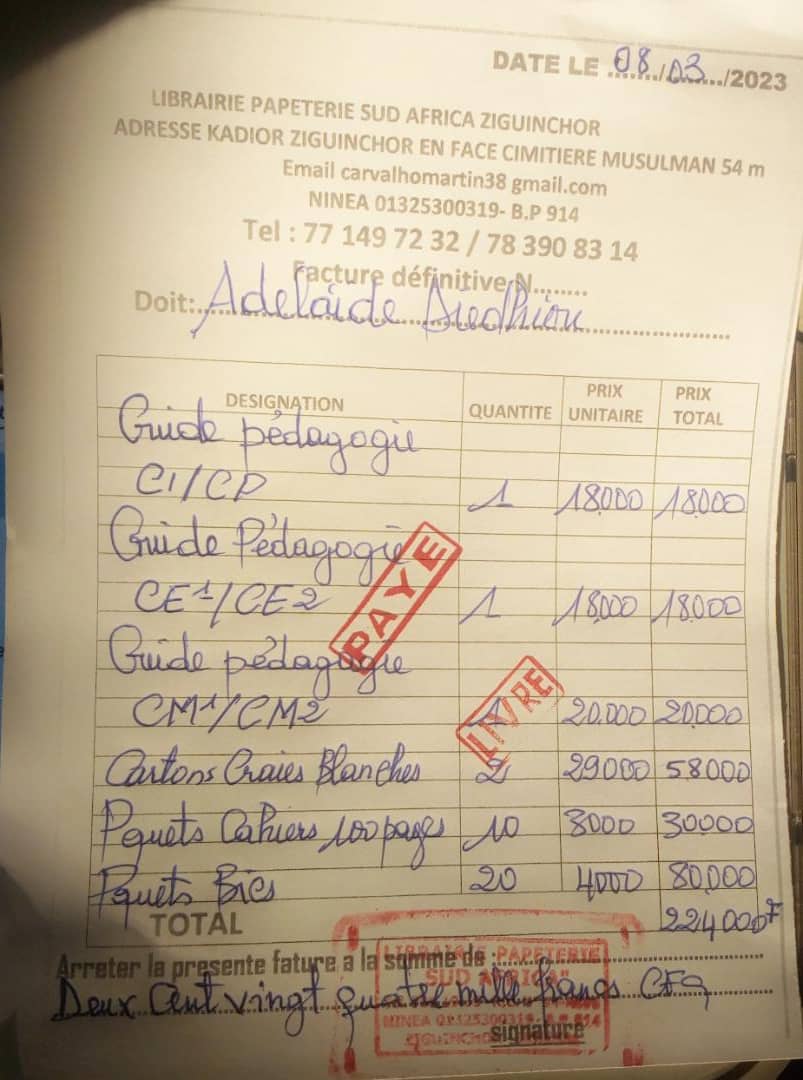 DATE LE 08/03/2023
LIBRAIRIE PAPETERIE SUD AFRICA ZIGUINCHOR
ADRESSE KADIOR ZIGUINCHOR EN FACE CIMITIERE MUSULMAN 54 m
Email carvalhomartin38 gmail.com
NINEA 01325300319- B.P 914
Tel : 77 149 72 32 / 78 390 83 14
Facture définitive N........
Doit: Adelaide Diedhiou
DESIGNATION QUANTITE PRIX UNITAIRE PRIX TOTAL
Guide pédagogie
CI/CP 1 18000 18000
Guide Pédagogie
CE1/CE2 1 18000 18000
PAYE
Guide pédagogie
CM1/CM2 1 20.000 20000
LIVRE
Cartons Craies Blanches 2 29000 58000
Pquets Cahiers 100 pages 10 3000 30000
Pquets Bics 20 4000 80000
TOTAL 224000F
Arreter la presente fature a la somme de :
Deux Cent vingt quatre mille francs CFA
LIBRAIRIE PAPETERIE
SUD AFRICA
NINEA 01325300319 B.P 914
ZIGUINCHOR
signature